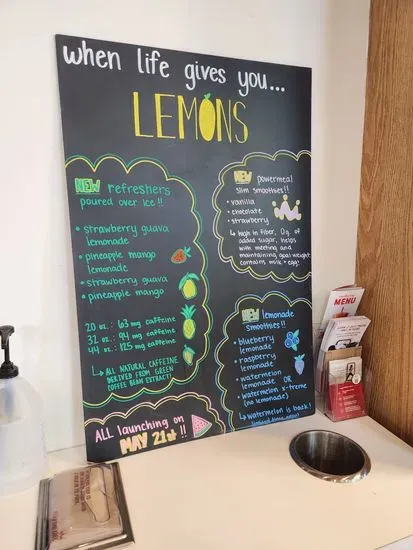 when life gives you...
LEMONS
NEW refreshers
poured over ice!!
• strawberry guava
lemonade
• pineapple mango
lemonade
• strawberry guava
• pineapple mango
20 oz: 63 mg caffeine
32 oz: 94 mg caffeine
44 oz: 125 mg caffeine
↳ ALL NATURAL CAFFEINE
DERIVED FROM GREEN
COFFEE BEAN EXTRACT!
ALL launching on
MAY 21st!!
NEW powermeal
slim smoothies!!
• vanilla
• chocolate
• strawberry
↳ high in fiber, 0g. of
added sugar, helps
with meeting and
maintaining goal weight
contains milk + egg!
NEW lemonade
smoothies!!
• blueberry
lemonade
• raspberry
lemonade
• watermelon
lemonade OR
• watermelon x-treme
(no lemonade)
↳ watermelon is back!
MENU